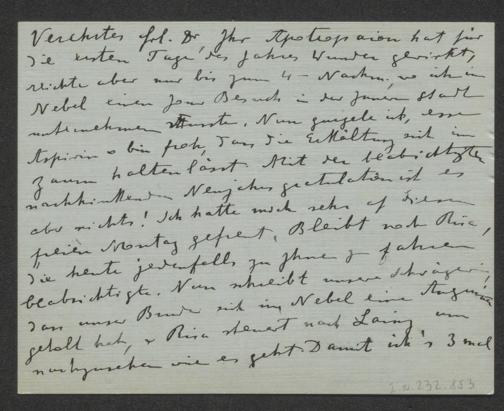 Verehrtes Frl. Dr, Ihr Apotropaion hat für
die ersten Tage des Jahres Wunder gewirkt,
reichte aber nur bis zum 4- Nachm, wo ich im
Nebel einen Jour Besuch in der Innern Stadt
unternehmen musste. Nun gurgele ich, esse
Aspirin & bin froh, dass die Erkältung sich im
zaum halten lässt. Mit der beabsichtigten
nachhinkenden Neujahrsgratulation ist es
aber nichts! Ich hatte mich sehr auf diesen
freien Montag gefreut. Bleibt noch Risa,
die heute jedenfalls zu Ihnen zu fahren
beabsichtigte. Nun schreibt unsere Schwägerin,
dass unser Bruder sich im Nebel eine Angina
geholt hat, & Risa steuert nach Lainz um
nachzusehen wie es geht. Damit ich's 3 mal
I.N. 232.853